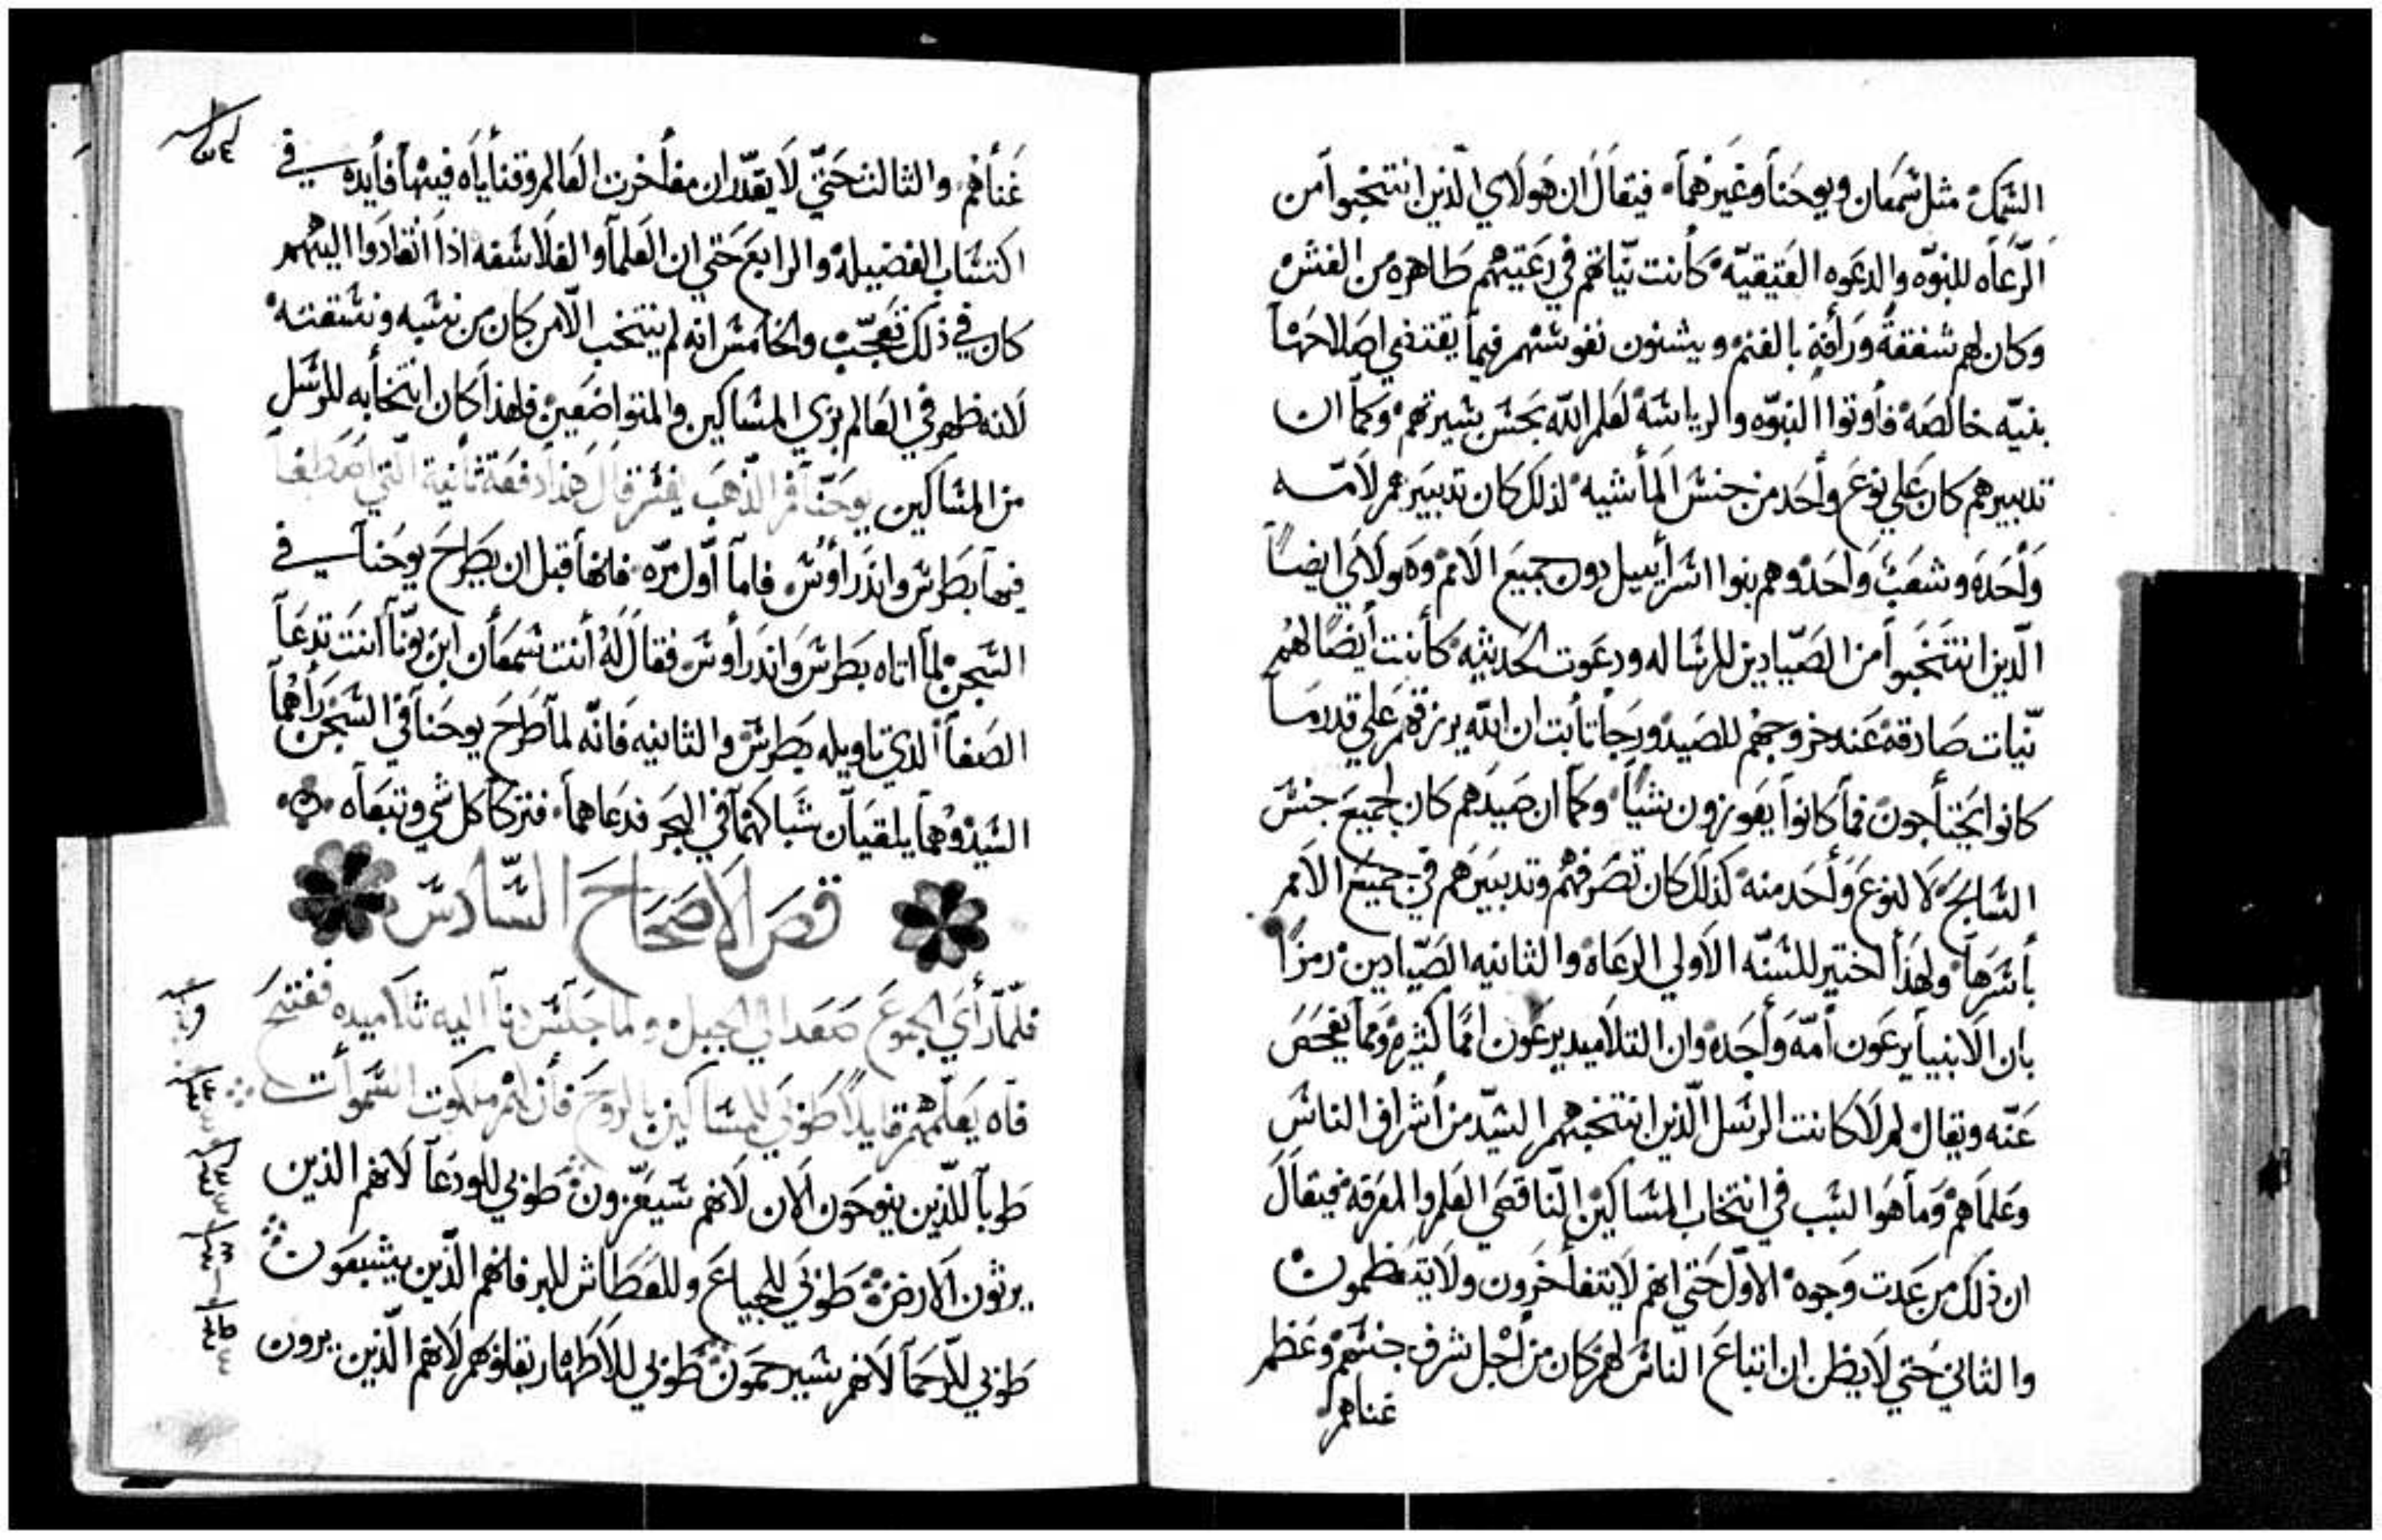 السَّمك مثل شمعان ويوحنا وغيرهما فيقال ان هولاي الذين انتخبوا من
الرعاه للنبوّه والدعوه العتيقيّه كانت نيّاتهم في رعيتهم طاهره من الغش
وكان لهم شفقة ورأفة بالغنم ويشنون نفوسهم فيما يقتضي اصلاحها
بنيّه خالصه فأوتوا النبوّه والرياسه لعلم الله بحسن سيرتهم وكما ان
تدبيرهم كان علي نوع وأحد من جنس المأشيه لذلك كان تدبيرهم لامّه
وأحده وشعب واحد وهم بنوا اسرأييل دون جميع الامم وهولاي ايضاً
الّذين انتخبوا من الصّيادين للرساله ودعوت الحديثيه كأنت أيضا لهم
نّيات صادقه عند خروجهم للصيد ورجا تأبت ان الله يرزقهم علي قدر ما
كانوا يحتأجون فمأ كانوا يعوزون شياً وكما ان صيدهم كان لجميع جنس
السّابح لا لنوع وأحد منه كذلك كان تصرفهم وتدبيرهم في جميع الامم
بأسرها ولهذا اختير للسنّه الاولي الرعاه والثانيه الصّيادين رمزاً
بان الانبيأ يرعون أمّه وأحده وان التلاميد يرعون امماً كثيره ومما يفحص
عنّه ويقال لم لا كانت الرسل الّذين انتخبهم السيّد من أشراف الناس
وعلماهم وما هوا السبب في انتخاب المساكين الناقصي العلم والمعرفه فيقال
ان ذلك من عدت وجوه الاوّل حتي انهم لا يتفأخرون ولا يتعظمون
والثاني حتي لا يظن ان اتباع الناس لهم كان من أجل شرف جنسهم وعظم
غناهم
غنأهم والثالث حتّي لا يقدّر ان مفأخرت العالم وقنأياه فيها فأيده في
اكتساب الفضيله والرابع حتي ان العلما والفلاسفه اذا أنقادوا اليهم
كان في ذلك تعجّب والخامس انه لم ينتخب الّا من كان من
لانه ظهر في العالم بزي المساكين والمتواضعين فلهذا كان انتخأبه للرسل
من المساكين يوحنّا فم الذهب يفسّر قال هذا دفعة ثانية الّتي اصطفا
فيها بطرس واندرأوس فاما أوّل مرّه فانهأ قبل ان يطرح يوحنا في
السّجن لما اتاه بطرس واندرأوس فقال له أنت شمعأن ابن يونّا أنت تدعا
الصفا الدي تاويله بطرس والثانيه فانّه لما طرح يوحنا في السّجن رأهما
السّيد وهما يلقيان شباكهما في البحر فدعاهما فتركا كل شي وتبعاه
فص الاصحاح السّادس
فلمّا رأي الجموع صعد الي الجبل ولما جلس دنا اليه تلاميده ففتح
فاه يعلّمهم قايلاً طوبي للمساكين بالروح فأن لهم ملكوت السموأت
طوبا للذّين ينوحون الان لانهم سيعزّون طوبي للودعا لانهم الذين
يرثون الارض طوبي للجياع وللعطاش للبر فانهم الّذين يشبعون
طوبي للرّحما لانهم سيرحمون طوبي للاطهار بقلوبهم لانهم الّذين يرون